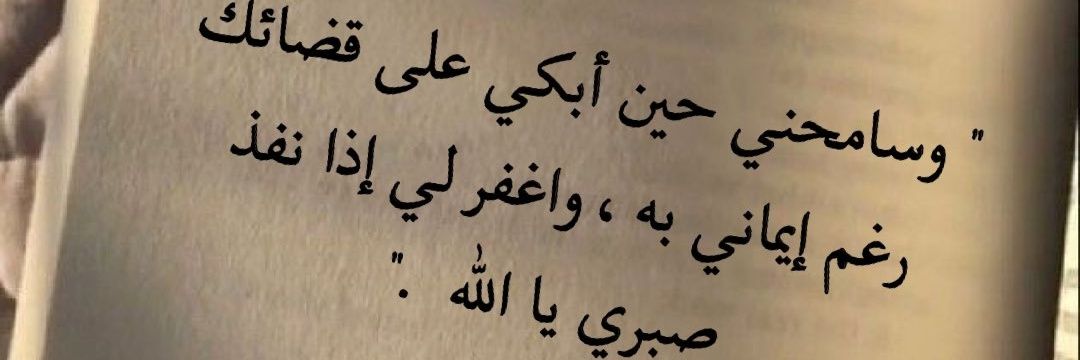 " وسامحني حين أبكي على قضائك
رغم إيماني به ، واغفر لي إذا نفذ
صبري يا الله ."